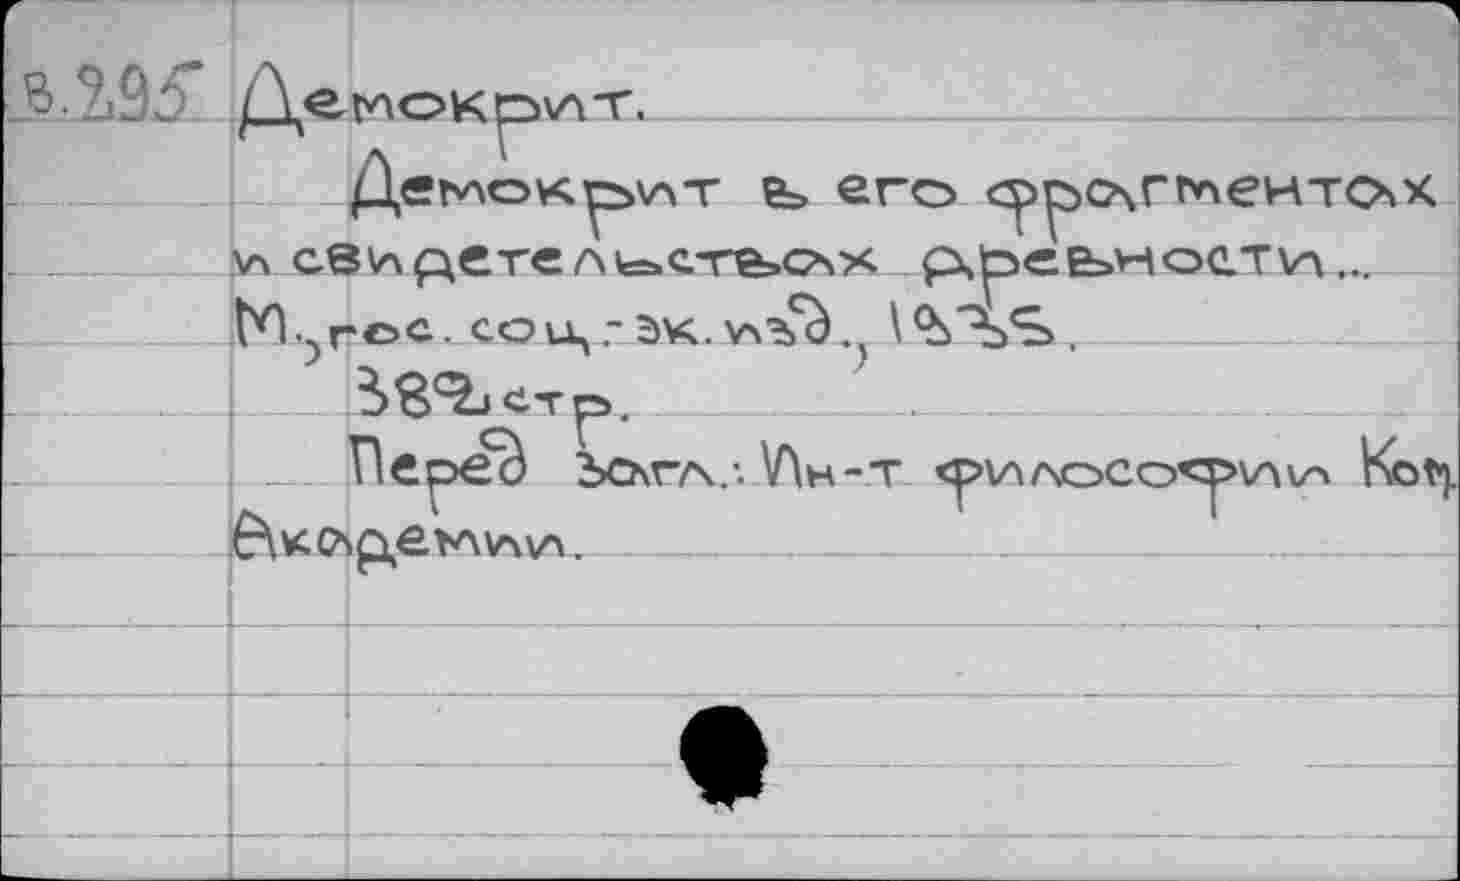 В.295 Демокрит.
Демокрит в его фрагментах
и свидетельствах древности...
М., гос. соц.-эк. изд., 1935.
382 стр.
Перед загл.: Ин-т философии Ком.
Академии.